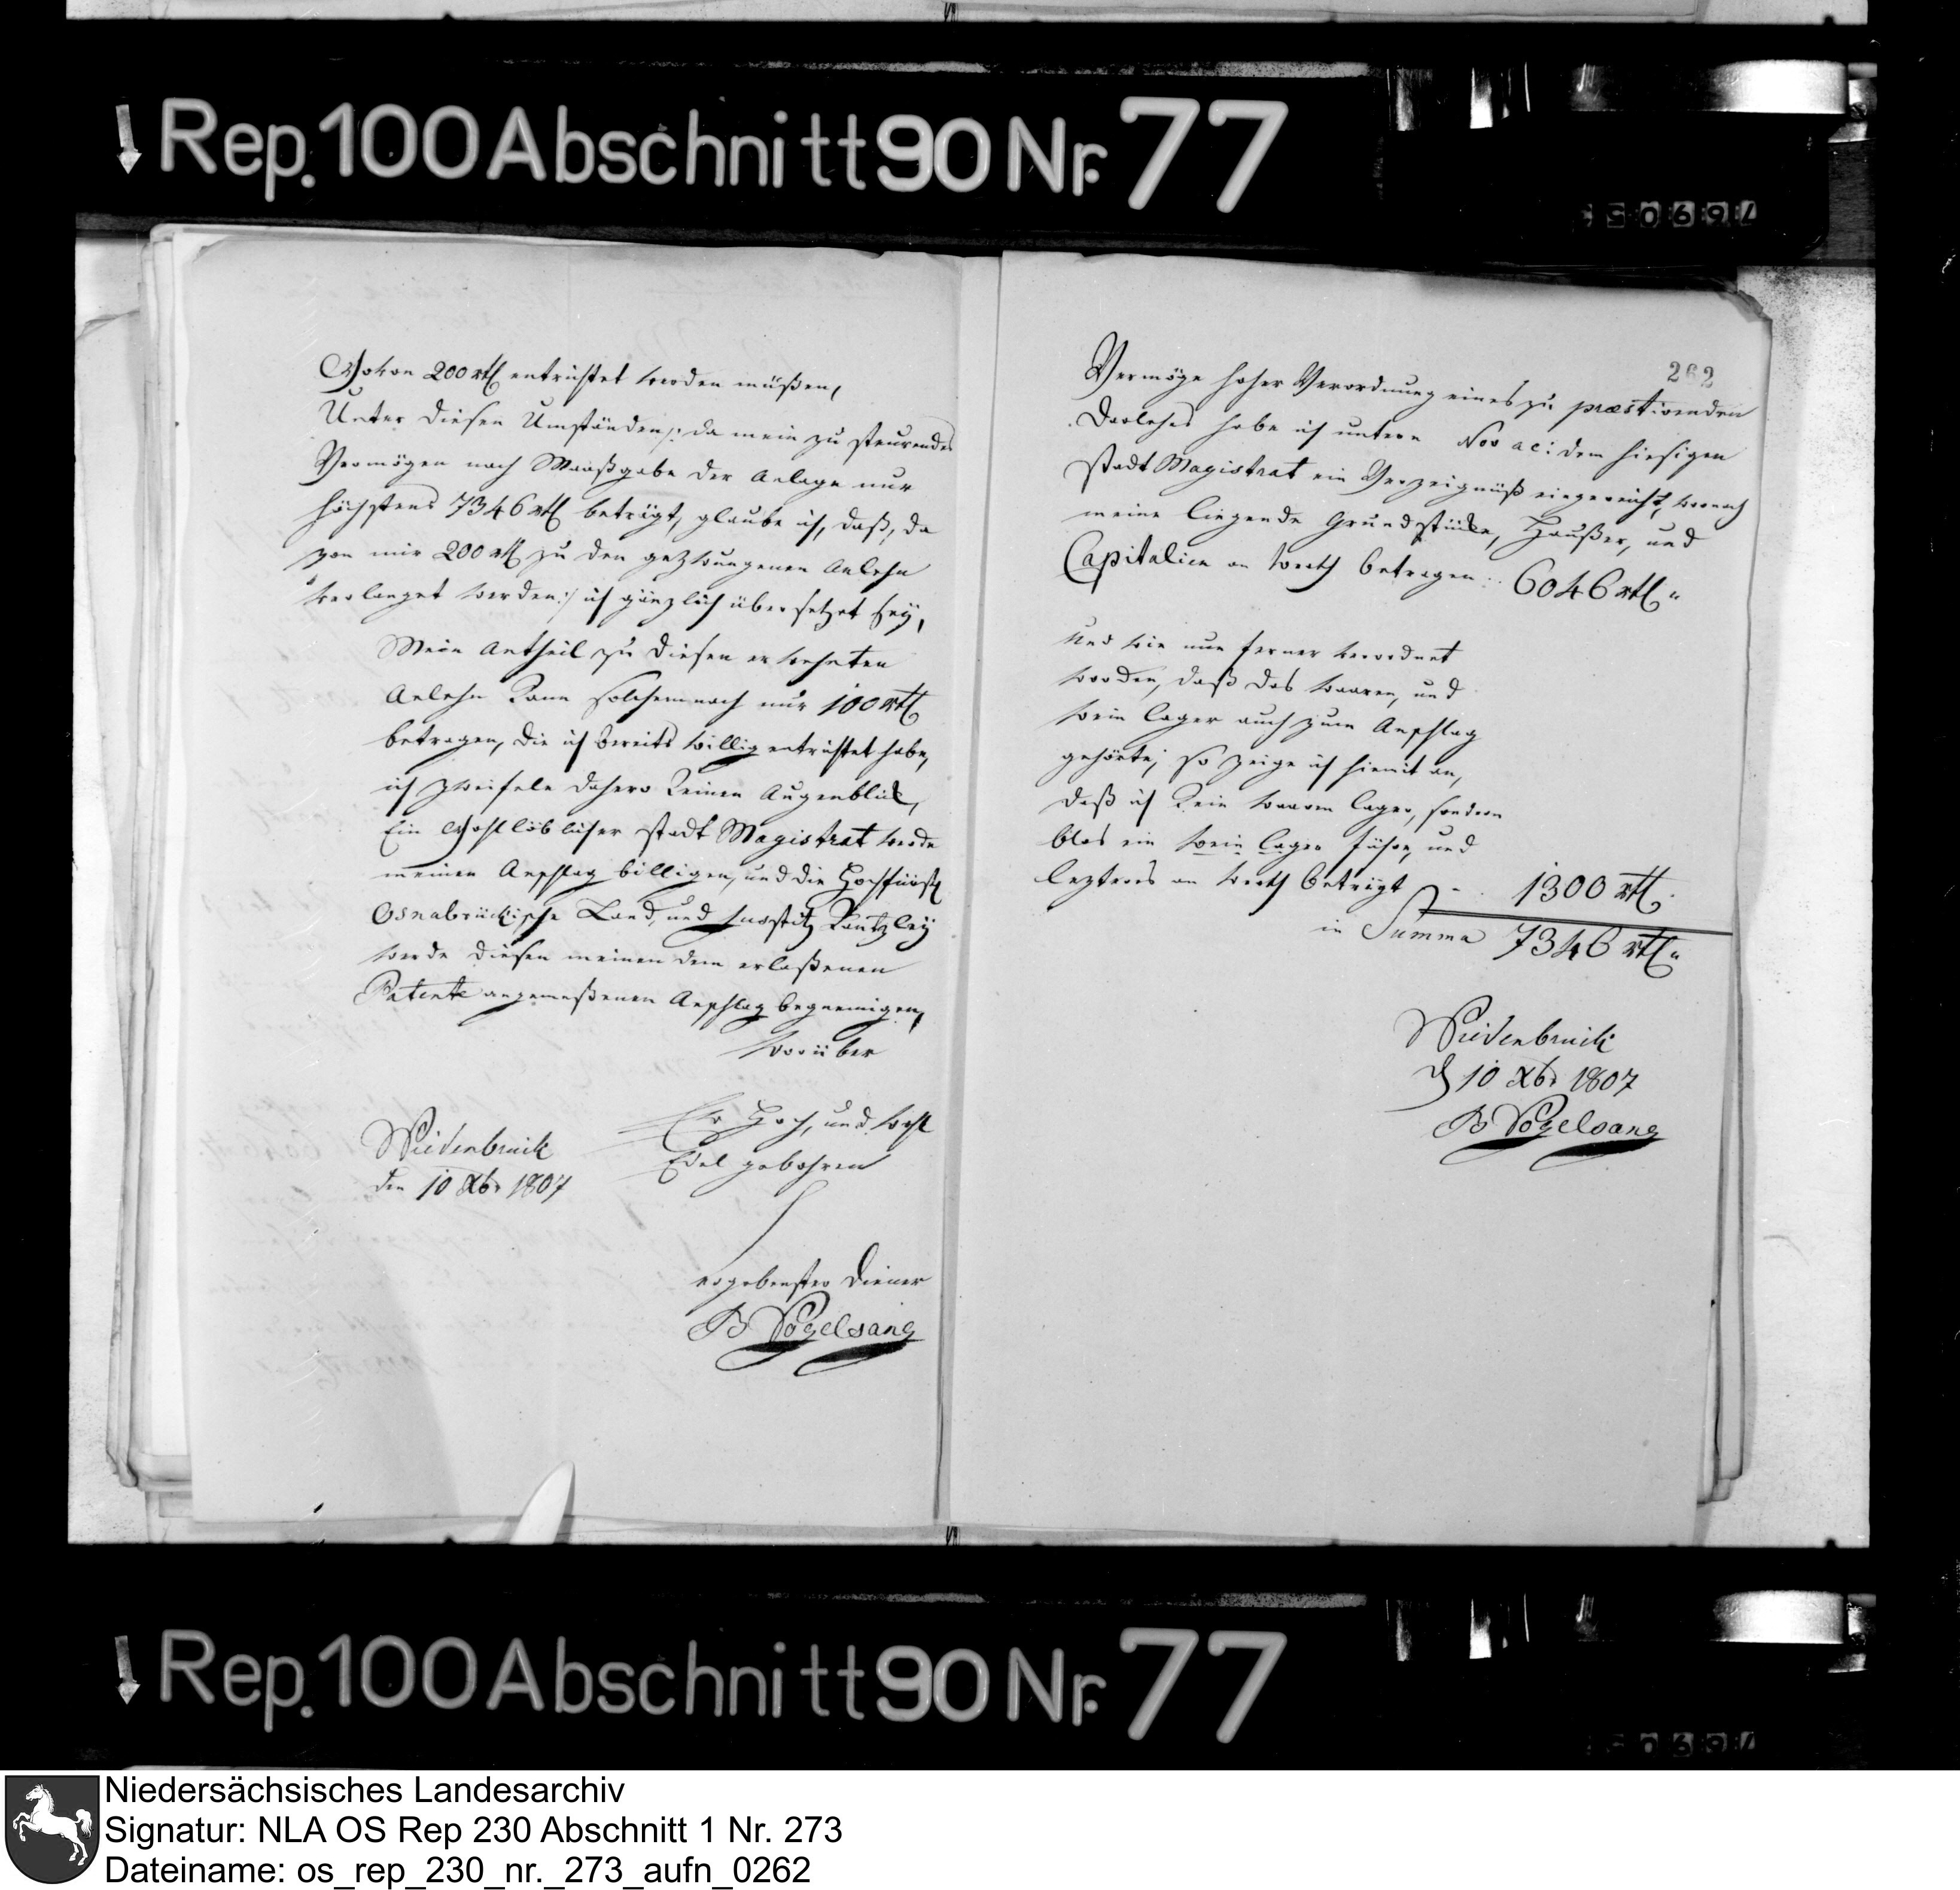 Rep. 100 Abschnitt 90 Nr. 77
Wovon 200 rtl entrichtet werden müßen,
Unter diesen Umständen /: da mein zu steurendes
Vermögen nach Maaßgabe der Anlage nur
höchstens 7346 rtl beträgt, glaube ich, daß, da
von mir 200 rtl zu den gezwungenen Anlehn
verlanget werden :/ ich gänzlich übersetzet sey,
Mein Antheil zu diesen erwehnten
Anlehn kann solchemnach nur 100 rtl
betragen, die ich bereits willig entrichtet habe,
ich zweifele dahero keinen Augenblick,
Ein Wohllöblicher stadt Magistrat werde
meinen Anschlag billigen, und die Hochfürstl
Osnabrückische Land, und Justitz Kantzley
werde diesen meinen dem erlaßenen
Patente angemeßenen Anschlag begnemigen,
worüber
Ew Hoch, und wohl
Edel gebohren
Wiedenbruck
den 10 Xbr 1807
ergebenster Diener
B Vogelsang
262
Vermöge hoher Verordnung eines zu præstirenden
Darlehes habe ich untern Nov ac: dem hiesigen
stadt Magistrat ein Verzeignüß eingereicht, wornach
meine liegende Grundstücke, Haußer, und
Capitalien an werth betragen :. 6046 rtl "
Und wie nun ferner verordnet
worden, daß das waaren, und
wein lager auch zum Anschlag
gehörte, so zeige ich hiemit an,
daß ich kein waaren lager, sondern
blos ein wein lager führe, und
lezteres an werth beträgt - . 1300 rtl.
in Summa 7346 rtl "
Wiedenbruck
d 10 Xbr 1807
B Vogelsang
Rep. 100 Abschnitt 90 Nr. 77
Niedersächsisches Landesarchiv
Signatur: NLA OS Rep 230 Abschnitt 1 Nr. 273
Dateiname: os_rep_230_nr._273_aufn_0262